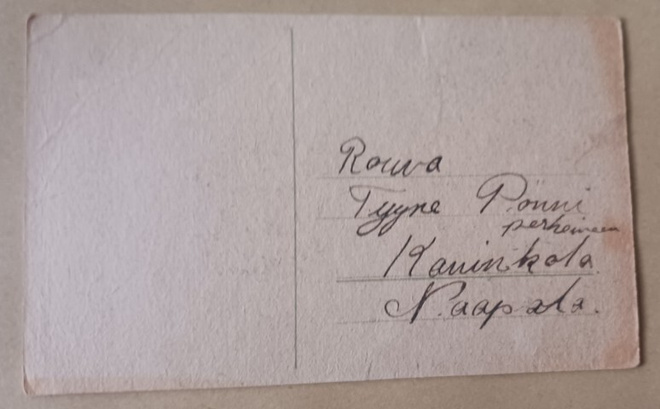 Rouva
Tyyne Pönni
perheineen
Kaninkola
Naapala.